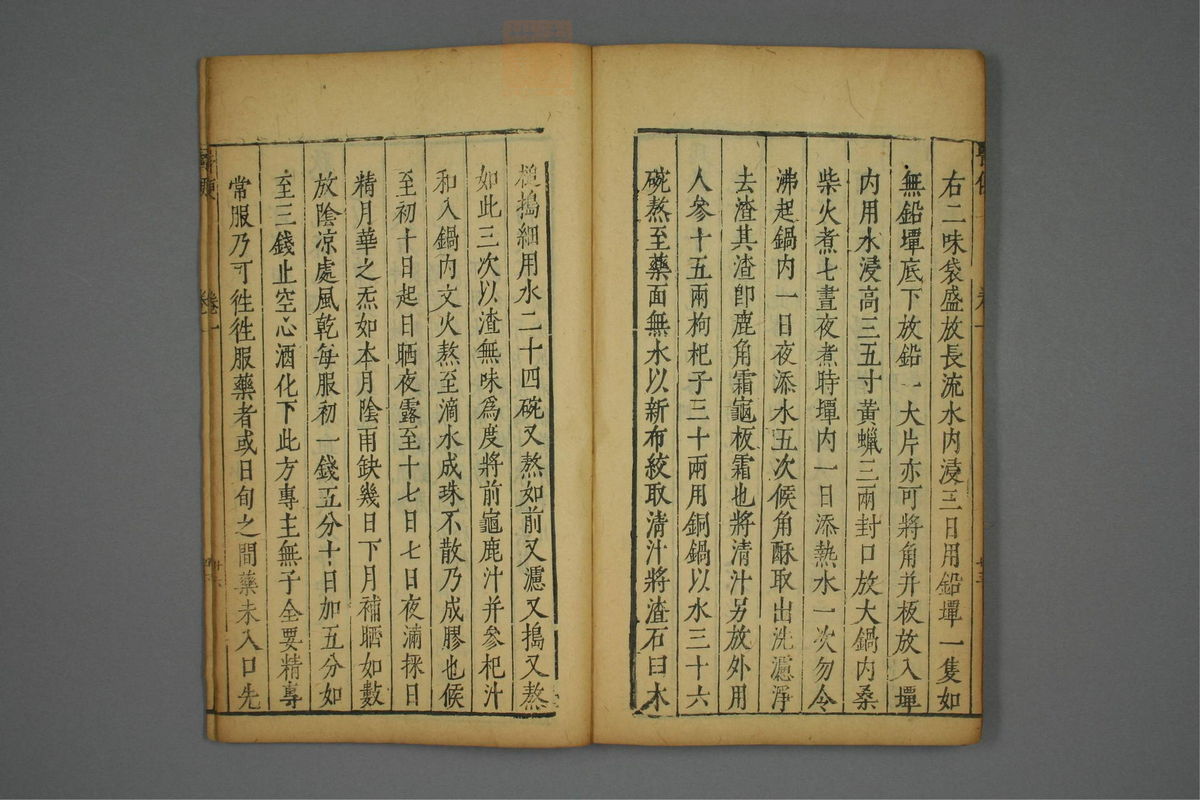 右二味袋盛放長流水内浸三日用鉛墰一隻如
無鉛墰底下放鉛一大片亦可將角并板放入墰
内用水浸高三五寸黃蠟三兩封口放大鍋内桑
柴火煮七晝夜煮時墰内一日添熱水一次勿令
沸起鍋内一日夜添水五次候角酥取出洗濾淨
去渣其渣卽鹿角霜龜板霜也將清汁另放外用
人參十五兩枸杞子三十兩用銅鍋以水三十六
碗熬至藥面無水以新布絞取清汁將渣石臼木
槌搗細用水二十四碗又熬如前又濾又搗又熬
如此三次以渣無味爲度將前龜鹿汁并參杞汁
和入鍋内文火熬至滴水成珠不散乃成膠也候
至初十日起日晒夜露至十七日七日夜滿採日
精月華之炁如本月陰雨缺幾日下月補晒如數
放陰凉處風乾每服初一錢五分十日加五分如
至三錢止空心酒化下此方專主無子全要精專
常服乃可徃徃服藥者或日旬之間藥未入口先